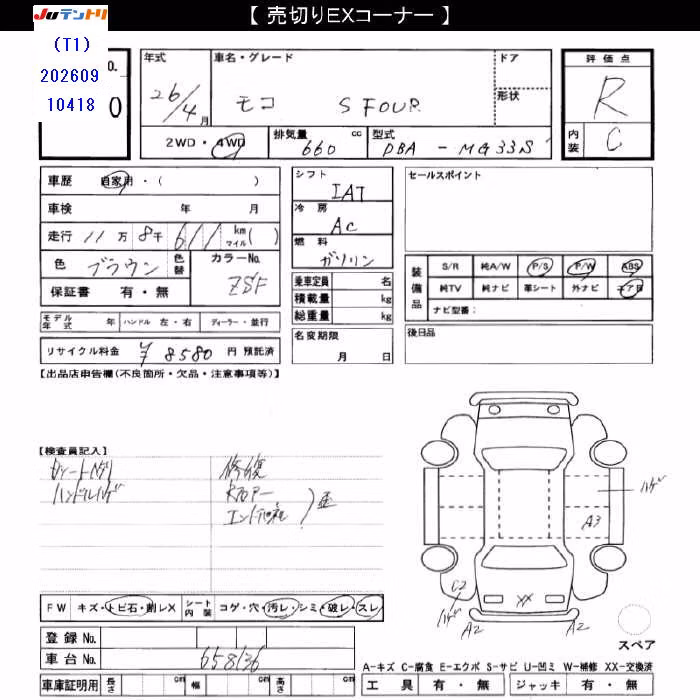 【 売切りEXコーナー 】
JUテントリ
(T1)
202609
10418
o.
0
年式
26/4月
車名・グレード
モコ S FOUR
ドア
形状
評価点
R
内装
C
2WD・4WD
排気量
660 cc
型式
DBA - MG33S
車歴 自家用・( )
車検 年 月
走行 11万 8千 611 km マイル ( )
色 ブラウン 色替
カラーNo.
ZSF
保証書 有・無
シフト
IAT
冷房
AC
燃料
ガソリン
乗車定員 名
積載量 kg
総重量 kg
セールスポイント
装備品
S/R 純A/W P/S P/W ABS
純TV 純ナビ 革シート 外ナビ エアB
ナビ型番:
モデル年式 年 ハンドル 左・右 ディーラー・並行
リサイクル料金 ¥8580 円 預託済
名変期限
月 日
後日品
【出品店申告欄(不良箇所・欠品・注意事項等)】
【検査員記入】
ハンドルハゲ
修復
FW キズ・トビ石・割レX シート内装 コゲ・穴・汚レ・シミ・破レ・スレ
登録No.
車台No. 658136
車庫証明用 長さ cm 幅 cm 高さ cm
ハゲ
A3
C2
ハゲ
A2
XX
A2
スペア
A-キズ C-腐食 E-エクボ S-サビ U-凹ミ W-補修 XX-交換済
工具 有・無 ジャッキ 有・無